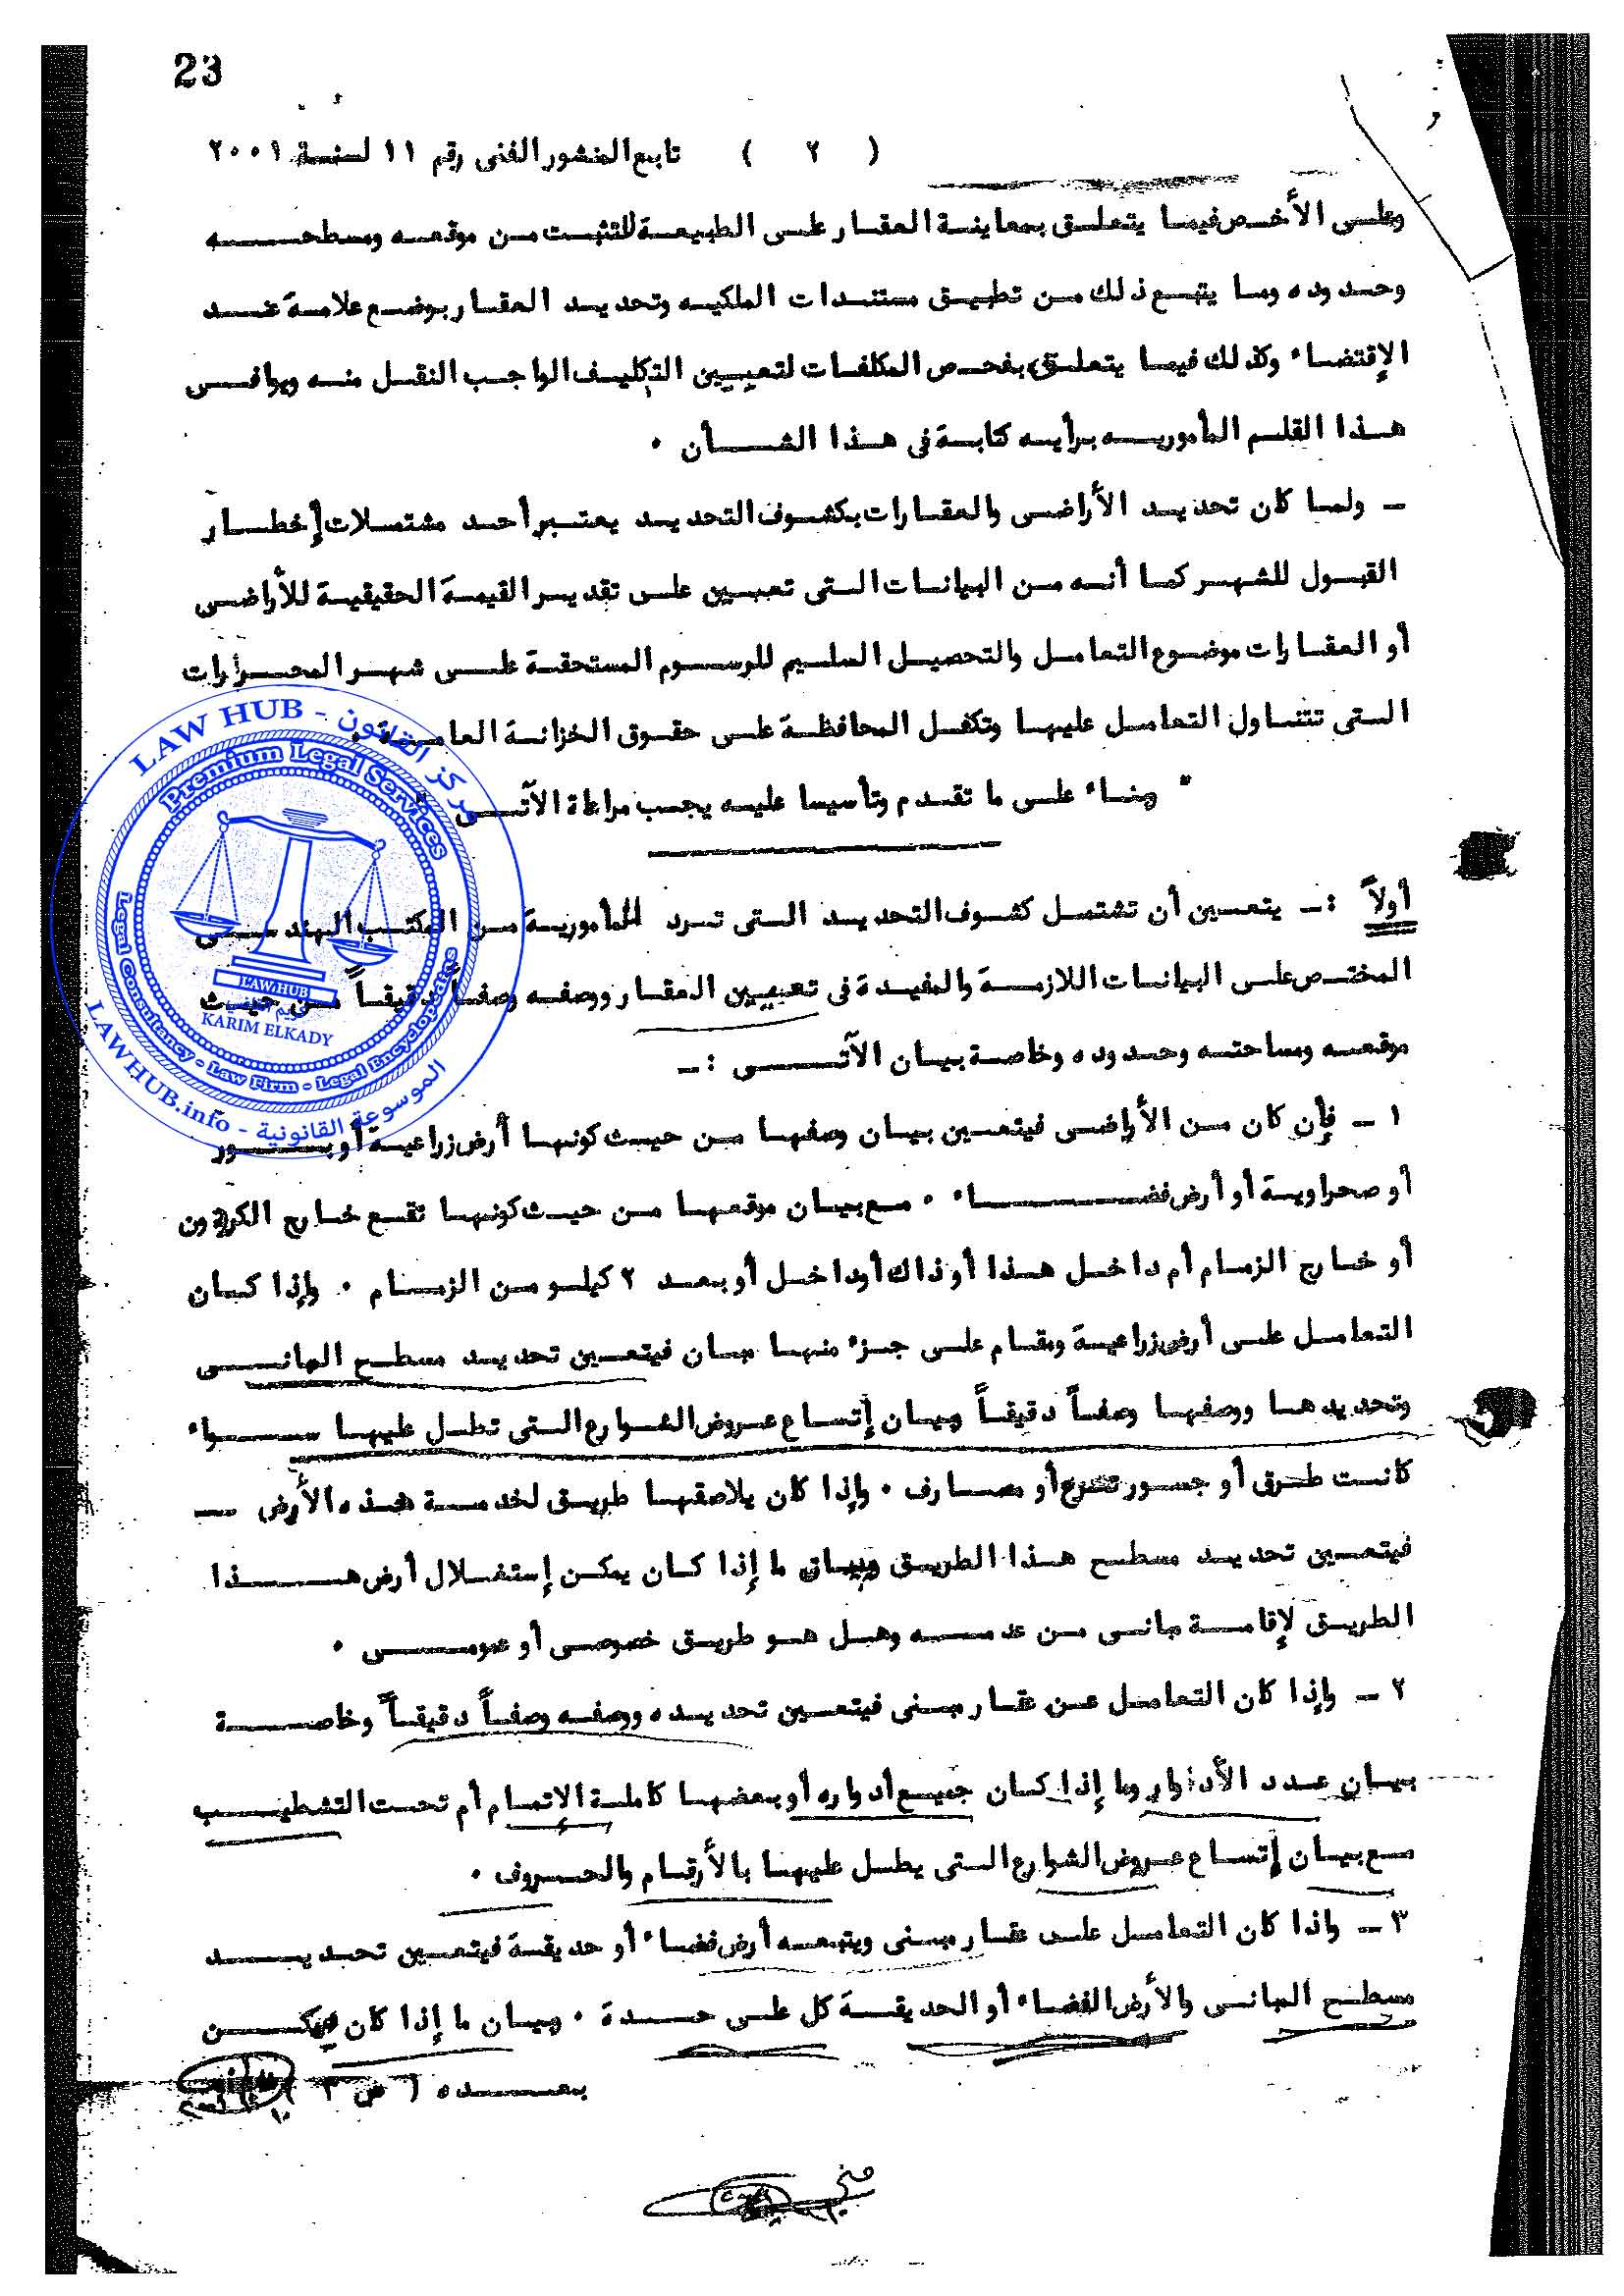 23
( ٢ ) تابع المنشور الفنى رقم ١١ لسنة ٢٠٠١
وعلى الأخص فيما يتعلق بمعاينة العقار على الطبيعة للتثبت من موقعه ومسطحه
وحدوده وما يتبع ذلك من تطبيق مستندات الملكيه وتحديد العقار بوضع علامة عند
الإقتضاء وكذلك فيما يتعلق بفحص المكلفات لتعيين التكليف الواجب النقل منه ويوافى
هذا القلم المأموريه برأيه كتابة فى هذا الشأن ٠
ـ ولما كان تحديد الأراضى والعقارات بكشوف التحديد يعتبر أحد مشتملات إخطار
القبول للشهر كما أنه من البيانات التى تعين على تقدير القيمة الحقيقية للأراضى
أو العقارات موضوع التعامل والتحصيل السليم للرسوم المستحقة على شهر المحرارات
التى تتناول التعامل عليها وتكفل المحافظة على حقوق الخزانة العامة ٠
" وبناء على ما تقدم وتأسيسا عليه يجب مراعاة الآتى "
أولاً :ـ يتعين أن تشتمل كشوف التحديد التى ترد المأمورية من المكتب الهندسى
المختص على البيانات اللازمة والمفيدة فى تعيين العقار ووصفه وصفاً دقيقاً من حيث
موقعه ومساحته وحدوده وخاصة بيان الآتى :ـ
١ ـ فإن كان من الأراضى فيتعين بيان وصفها من حيث كونها أرض زراعية أو بور
أو صحراوية أو أرض فضاء ٠ مع بيان موقعها من حيث كونها تقع خارج الكردون
أو خارج الزمام أم داخل هذا أو ذاك أو داخل أو بعد ٢ كيلو من الزمام ٠ وإذا كان
التعامل على أرض زراعية ومقام على جزء منها مبان فيتعين تحديد مسطح المبانى
وتحديدها ووصفها وصفاً دقيقاً وبيان إتساع عروض الشوارع التى تطل عليها سواء
كانت طرق أو جسور ترع أو مصارف ٠ وإذا كان يلاصقها طريق لخدمة هذه الأرض ـ
فيتعين تحديد مسطح هذا الطريق وبيان ما إذا كان يمكن إستغلال أرض هذا
الطريق لإقامة مبانى من عدمه وهل هو طريق خصوصى أو عمومى ٠
٢ ـ وإذا كان التعامل عن عقار مبنى فيتعين تحديده ووصفه وصفاً دقيقاً وخاصة
بيان عدد الأدوار وما إذا كان جميع أدواره أو بعضها كاملة الإتمام أم تحت التشطيب
مع بيان إتساع عروض الشوارع التى يطل عليها بالأرقام والحروف ٠
٣ ـ واذا كان التعامل على عقار مبنى ويتبعه أرض فضاء أو حديقة فيتعين تحديد
مسطح المبانى والأرض الفضاء أو الحديقة كل على حدة ٠ وبيان ما إذا كان يمكن
بعده ( ص ٣ )
LAW HUB - مركز القانون
Premium Legal Services
LAWHUB
كريم القاضى
KARIM ELKADY
Legal Consultancy - Law Firm - Legal Encyclopedias
LAWHUB.info - الموسوعة القانونية